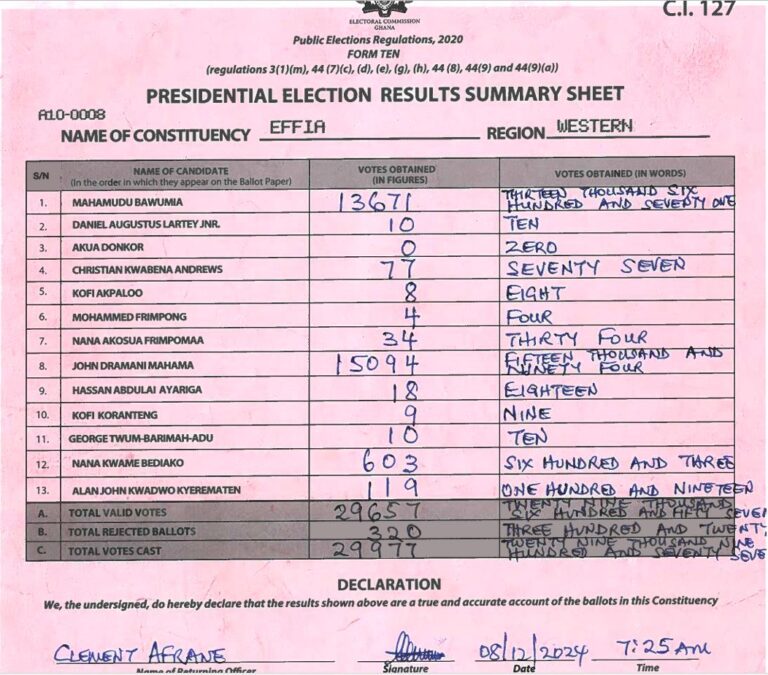 C.I. 127
ELECTORAL COMMISSION
GHANA
Public Elections Regulations, 2020
FORM TEN
(regulations 3(1)(m), 44 (7)(c), (d), (e), (g), (h), 44 (8), 44(9) and 44(9)(a))
PRESIDENTIAL ELECTION RESULTS SUMMARY SHEET
A10-0008
NAME OF CONSTITUENCY EFFIA REGION WESTERN
S/N NAME OF CANDIDATE (In the order in which they appear on the Ballot Paper) VOTES OBTAINED (IN FIGURES) VOTES OBTAINED (IN WORDS)
1. MAHAMUDU BAWUMIA 13671 THIRTEEN THOUSAND SIX HUNDRED AND SEVENTY ONE
2. DANIEL AUGUSTUS LARTEY JNR. 10 TEN
3. AKUA DONKOR 0 ZERO
4. CHRISTIAN KWABENA ANDREWS 77 SEVENTY SEVEN
5. KOFI AKPALOO 8 EIGHT
6. MOHAMMED FRIMPONG 4 FOUR
7. NANA AKOSUA FRIMPOMAA 34 THIRTY FOUR
8. JOHN DRAMANI MAHAMA 15094 FIFTEEN THOUSAND AND NINETY FOUR
9. HASSAN ABDULAI AYARIGA 18 EIGHTEEN
10. KOFI KORANTENG 9 NINE
11. GEORGE TWUM-BARIMAH-ADU 10 TEN
12. NANA KWAME BEDIAKO 603 SIX HUNDRED AND THREE
13. ALAN JOHN KWADWO KYEREMATEN 119 ONE HUNDRED AND NINETEEN
A. TOTAL VALID VOTES 29657 TWENTY NINE THOUSAND SIX HUNDRED AND FIFTY SEVE
B. TOTAL REJECTED BALLOTS 320 THREE HUNDRED AND TWENTY
C. TOTAL VOTES CAST 29977 TWENTY NINE THOUSAND NINE HUNDRED AND SEVENTY SEVE
DECLARATION
We, the undersigned, do hereby declare that the results shown above are a true and accurate account of the ballots in this Constituency
CLEMENT AFRANE 08/12/2024 7:25AM
Name of Returning Officer Signature Date Time